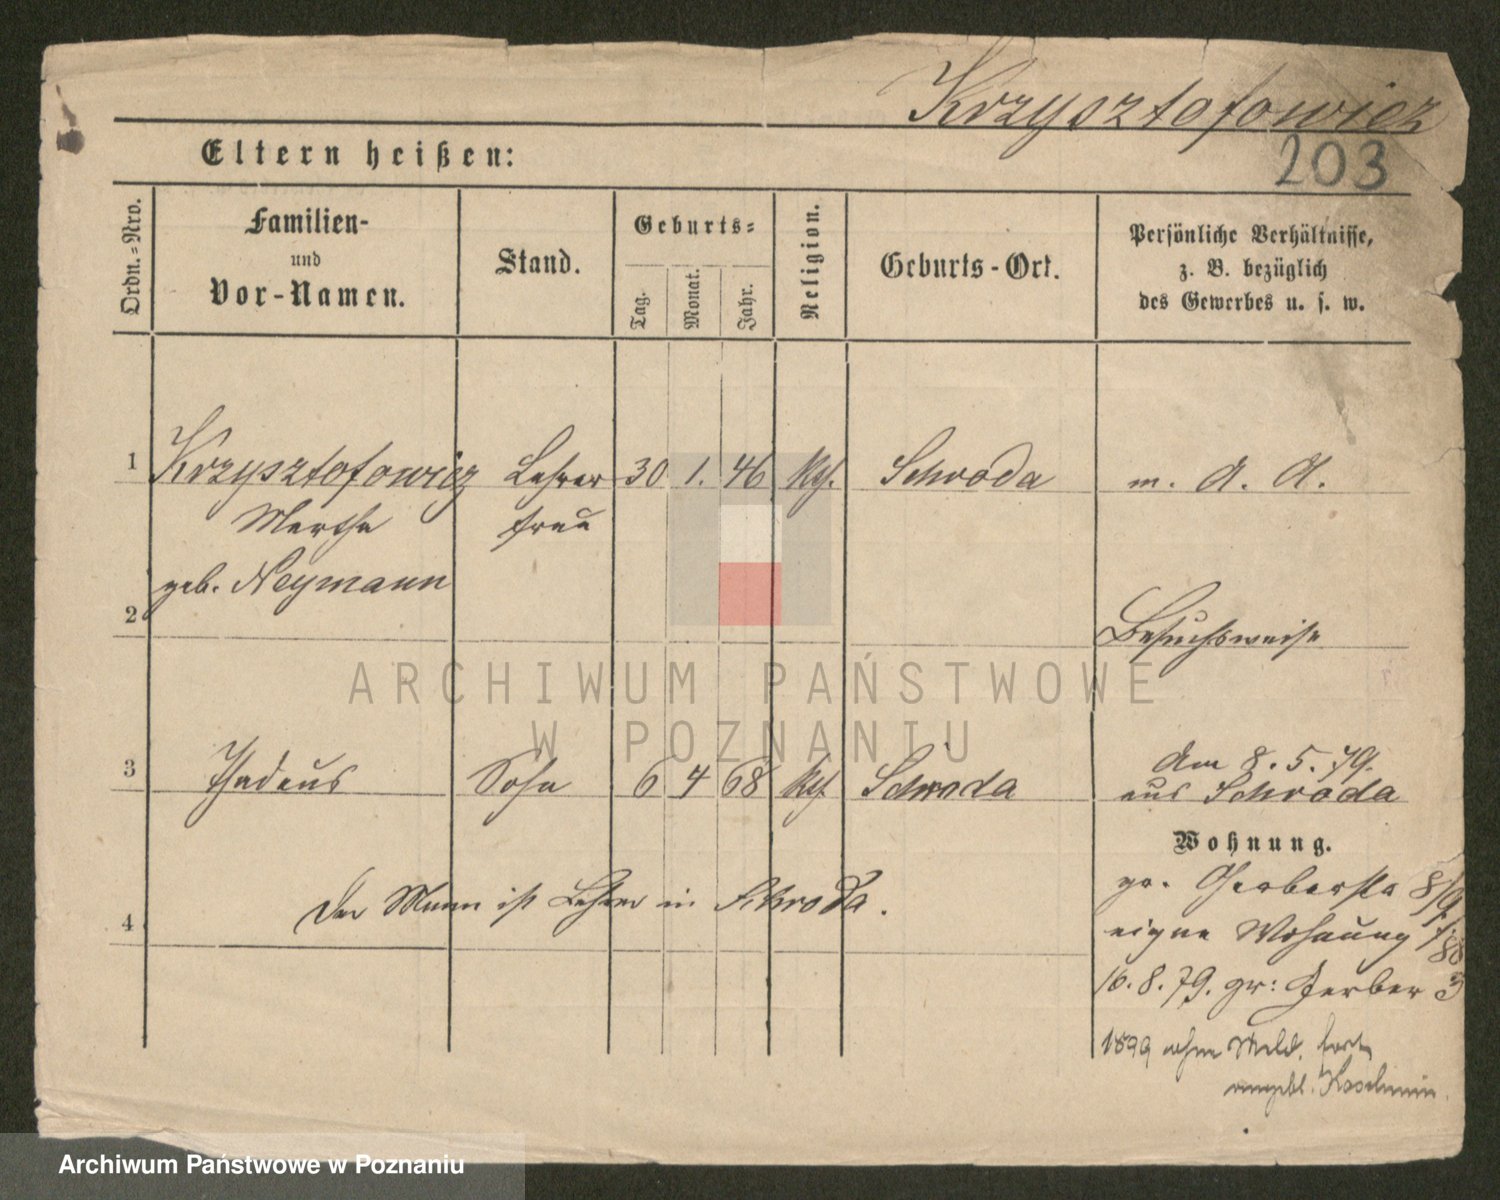 Krzysztofowicz
203
Eltern heißen:
Ordn.=Nro.
Familien-
und
Vor-Namen.
Stand.
Geburts=
Tag.
Monat.
Jahr.
Religion.
Geburts-Ort.
Persönliche Verhältnisse,
z. B. bezüglich
des Gewerbes u. s. w.
1 Krzysztofowicz Lehrer 30 1. 46 Kth. Schroda m. A. A.
Martha frau
geb. Neymann
2
Besuchsweise
3 Thadeus Sohn 6 4 68 Kth. Schroda
Am 8. 5. 79.
aus Schroda
Wohnung.
gr. Gerberstr 8/9
4 Der Mann ist Lehrer in Schroda.
eigne Wohnung
16. 8. 79. gr: Gerber 3
1899 ohne Meld. fort
angebl. Koschmin.
ARCHIWUM PAŃSTWOWE
W POZNANIU
Archiwum Państwowe w Poznaniu